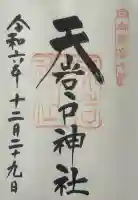 天岩戸神社
令和六年十二月二十九日